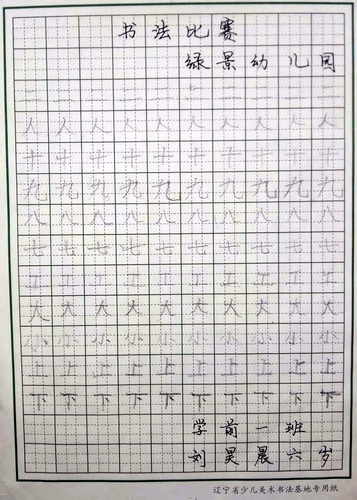 书法比赛
绿景幼儿园
二二二二二二二二二二
人人人人人人人人人人
九九九九九九九九九九
八八八八八八八八八八
七七七七七七七七七七
工工工工工工工工工工
大大大大大大大大大大
小小小小小小小小小小
上上上上上上上上上上
下下下下下下下下下下
学前一班
刘昊晨六岁
辽宁省少儿美术书法基地专用纸